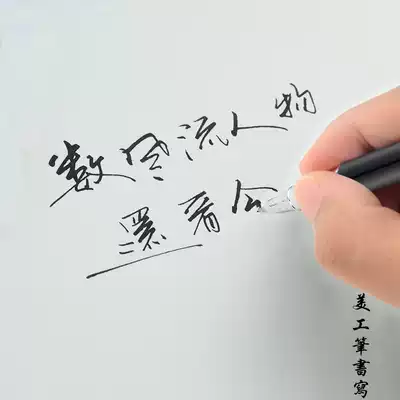 数风流人物
還看今
美工筆書寫